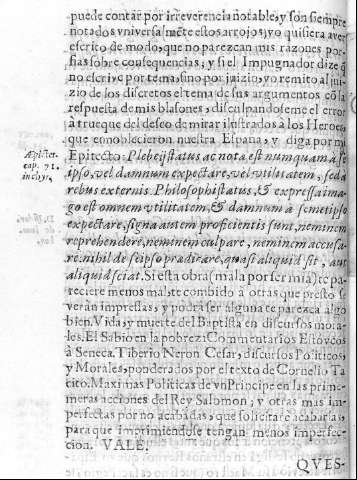 puede contar por irreverencia notable, y son siempre
notados vniversalmẽte estos arrojos; yo quisiera aver
escrito de modo, que no parezcan mis razones por-
fias sobre consequencias; y si el Impugnador dize q̃
no escrive por tema, sino por juizio, yo remito al jui-
zio de los discretos el tema de sus argumentos cõ la
respuesta de mis blasones, disculpandoseme el error
à trueque del deseo de mirar ilustrados à los Heroes
que ennoblecieron nuestra España; y diga por mi
Epitecto: Plebeij status ac nota est numquam à se
ipso, vel damnum expectare, vel vtilitatem, sed à
rebus externis. Philosophi status, & expressa ima-
go est omnem vtilitatem, & damnum à semetipso
expectare, signa autem proficientis sunt, neminem
reprehendere, neminem culpare, neminem accusa-
re. nihil de se ipso prædicare, quasi aliquid sit, aut
aliquid sciat. Si esta obra (mala por ser mia) te pa-
reciere menos mal, te combido à otras que presto se
veràn impressas, y podrà ser alguna te parezca algo
bien. Vida, y muerte del Baptista en discursos mora-
les. El Sabio en la pobreza: Commentarios Estoycos
à Seneca. Tiberio Neron Cesar, discursos Politicos,
y Morales, ponderados por el texto de Cornelio Ta-
cito. Maximas Politicas de vn Principe en las prime-
meras acciones del Rey Salomon; y otras mas im-
perfectas por no acabadas, que solicitarè acabarlas,
para que imprimiendose tengan menos imperfec-
cion. VALE.
QVES-
cap. 71.